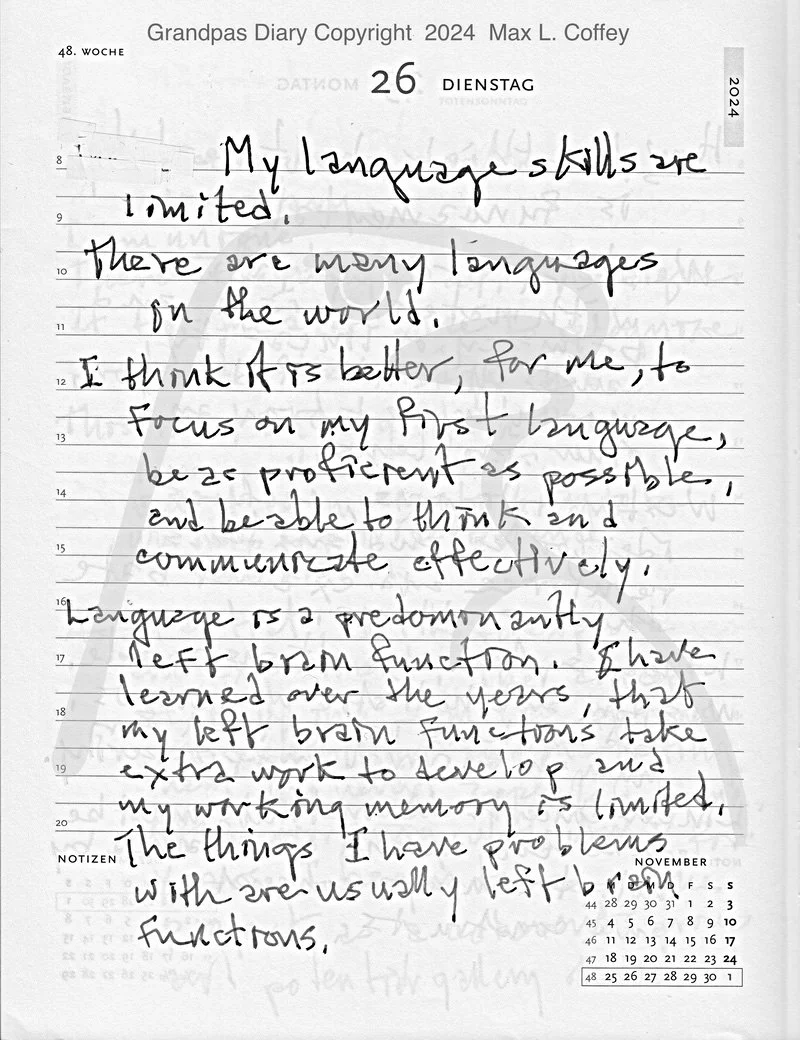 Grandpas Diary Copyright 2024 Max L. Coffey
48. WOCHE
26 DIENSTAG
2024
8 My language skills are
9 limited.
10 There are many languages
11 in the world.
12 I think it is better, for me, to
13 focus on my first language,
14 be as proficient as possible,
and be able to think and
15 communicate effectively.
16 Language is a predominantly
17 left brain function. I have
18 learned over the years, that
my left brain functions take
19 extra work to develop and
my working memory is limited.
20 The things I have problems
NOTIZEN
with are usually left brain
functions.
NOVEMBER
M D M D F S S
44 28 29 30 31 1 2 3
45 4 5 6 7 8 9 10
46 11 12 13 14 15 16 17
47 18 19 20 21 22 23 24
48 25 26 27 28 29 30 1